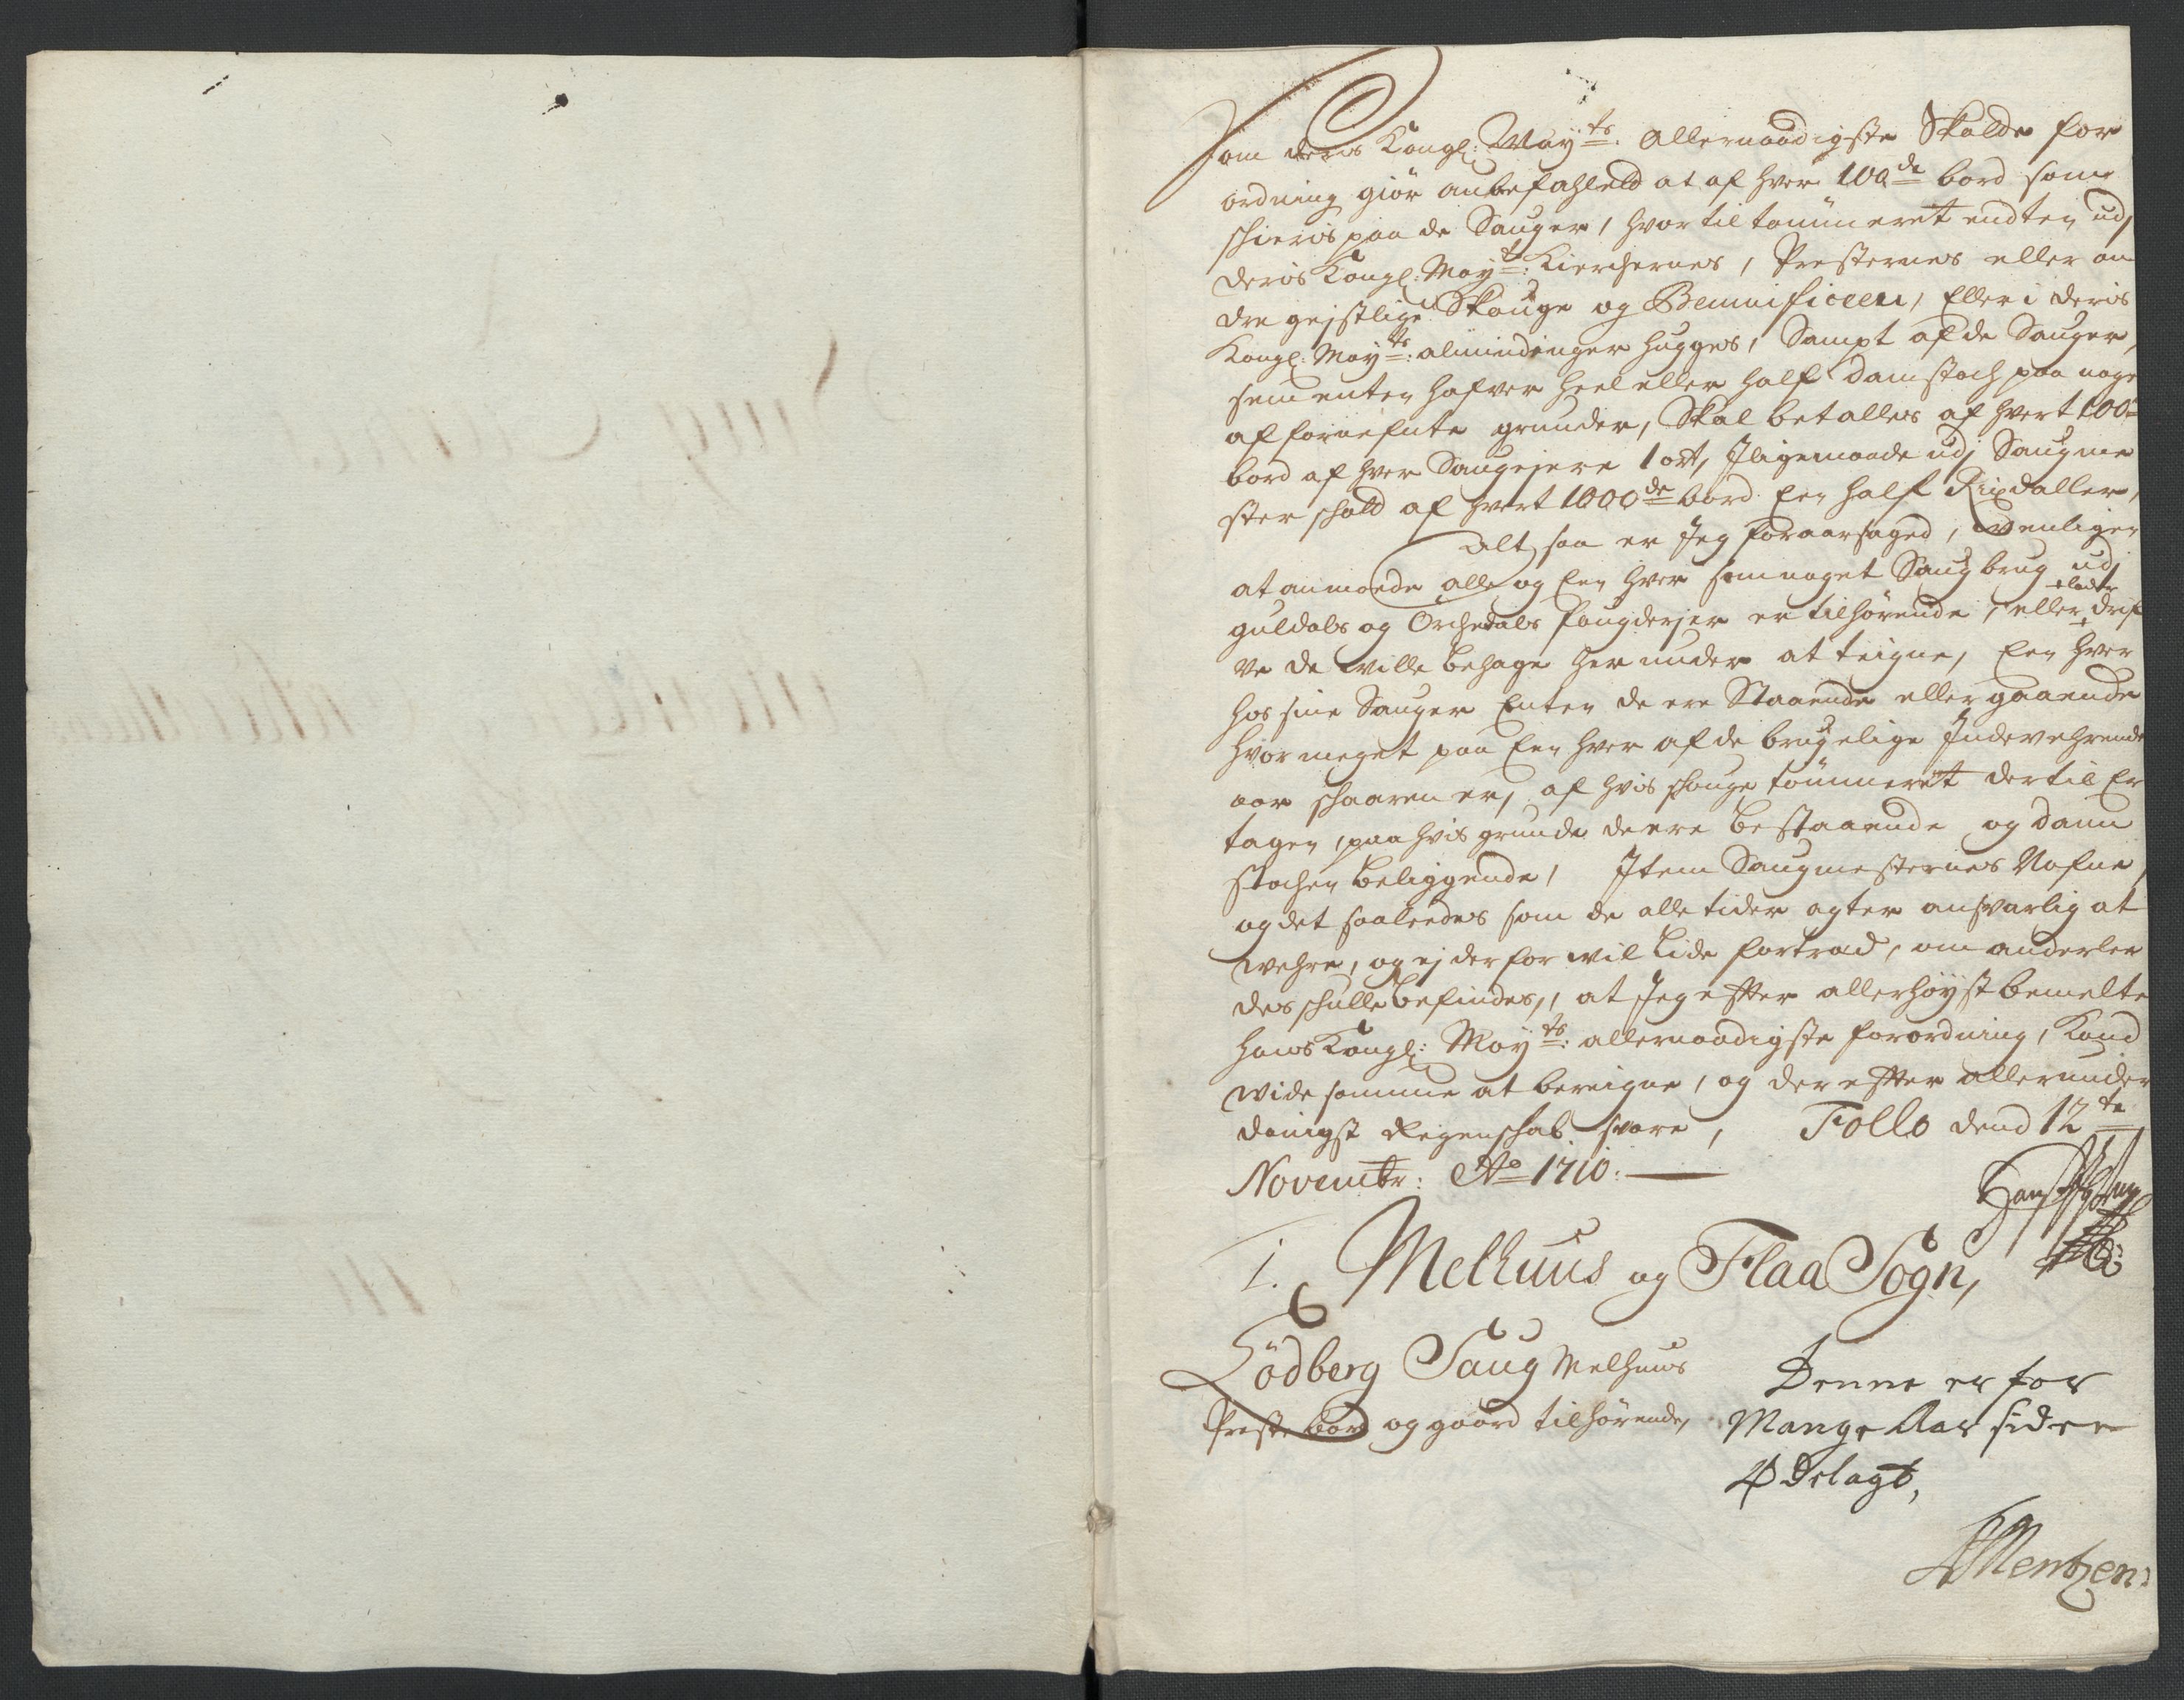 Som deris Kongl: May:ts allernaadigste Skatte for
ordning giör anbefahleld at af hver 100de bord som
schieris paa de Sauger, hvortil tømmeret endten udj
Deris Kongl: Mayts: Kierchernes, Presternes eller an
dre gejstlige Skouge og Bennificeer, Eller i deris
Kongl: Mayts: almindinger hugges, Sampt af de Sauger,
som enten hafver heel eller half damstoch paa noge
af forneFnte grunder, Skal betalles af hvert 100de
bord af hver Saugejere 1 ort, Jligemaade udj Saugme
ster schald af hvert 1000de bord Een half Rixdaller,
Alt saa er Jeg foraarsaged, venligen
at anmode alle og Een hver som noget Saugbrug udj
guldals og Orchedals fougderjer er tilhörende, eller + lader drif
ve de ville behage her under at teigne, Een hver
hos sine Sauger Enten de ere Staaende eller gaaende
hvor meget paa Een hver af de brugelige Indeverende
aar schaaren er, af hvis schouge tömmeret dertil Er
tagen, paa hvis grunde de ere bestaaende og dam
stochen beliggende, Item Saugmesternes Nafne,
og det saaleedes som de alle tider agter ansvarlig at
vehre, og ej derfor vil lide fortræd, om anderlee
des schulle befindes, at Jeg efter allerhöyst bemelte
hans Kongl: Mayts: allernaadigste forordning, Kand
vide somme at bereigne, og der efter allerunder
danigst Regenschab svare, Follo dend 12te
Novembr: Ao 1710.
1. Melhuus og Flaa Sogn,
Lödberg Saug Melhuus
Preste bord og gaard tilhörende,
Denne er for
Mange Aar siden
Ødelagt,
Mentzen: